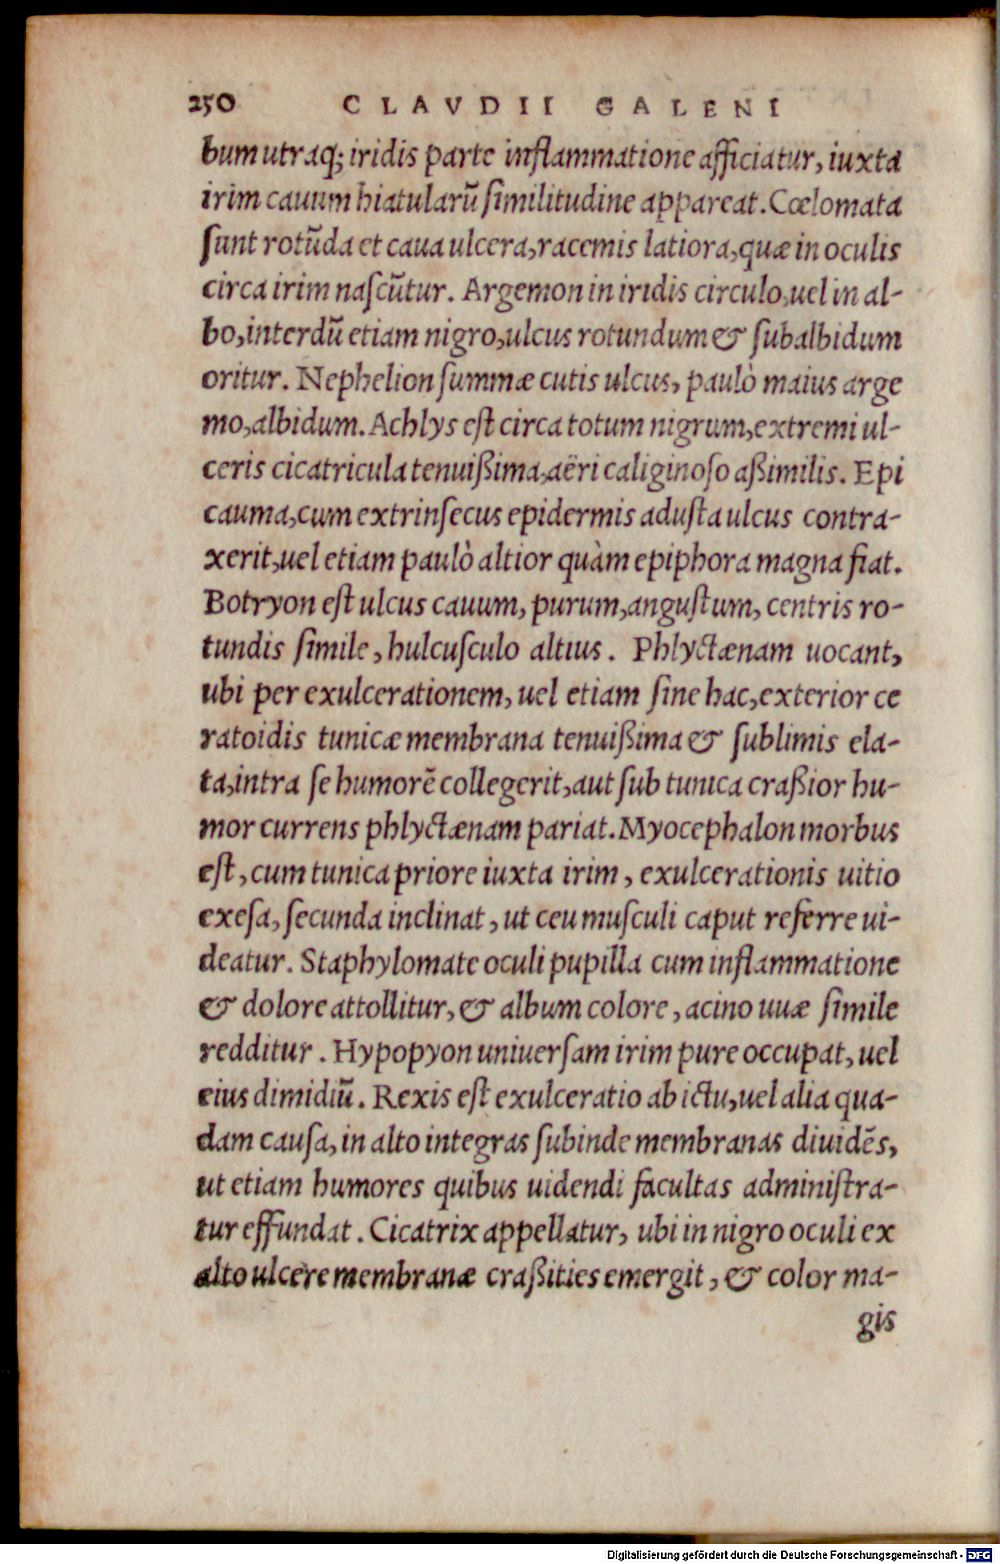 250 CLAVDII GALENI
bum utraq; iridis parte inflammatione afficiatur, iuxta
irim cauum hiatularũ ſimilitudine appareat. Cœlomata
ſunt rotũda et caua ulcera, racemis latiora, quæ in oculis
circa irim naſcũtur. Argemon in iridis circulo, uel in al-
bo, interdũ etiam nigro, ulcus rotundum & ſubalbidum
oritur. Nephelion ſummæ cutis ulcus, paulò maius arge
mo, albidum. Achlys eſt circa totum nigrum, extremi ul-
ceris cicatricula tenuißima, aëri caliginoſo aßimilis. Epi
cauma, cum extrinſecus epidermis aduſta ulcus contra-
xerit, uel etiam paulò altior quàm epiphora magna fiat.
Botryon eſt ulcus cauum, purum, anguſtum, centris ro-
tundis ſimile, hulcuſculo altius. Phlyctænam uocant,
ubi per exulcerationem, uel etiam ſine hac, exterior ce
ratoidis tunicæ membrana tenuißima & ſublimis ela-
ta, intra ſe humorẽ collegerit, aut ſub tunica craßior hu-
mor currens phlyctænam pariat. Myocephalon morbus
eſt, cum tunica priore iuxta irim, exulcerationis uitio
exeſa, ſecunda inclinat, ut ceu muſculi caput referre ui-
deatur. Staphylomate oculi pupilla cum inflammatione
& dolore attollitur, & album colore, acino uuæ ſimile
redditur. Hypopyon uniuerſam irim pure occupat, uel
eius dimidiũ. Rexis eſt exulceratio ab ictu, uel alia qua-
dam cauſa, in alto integras ſubinde membranas diuidẽs,
ut etiam humores quibus uidendi facultas adminiſtra-
tur effundat. Cicatrix appellatur, ubi in nigro oculi ex
alto ulcere membranæ craßities emergit, & color ma-
gis
Digitalisierung gefördert durch die Deutsche Forschungsgemeinschaft - DFG